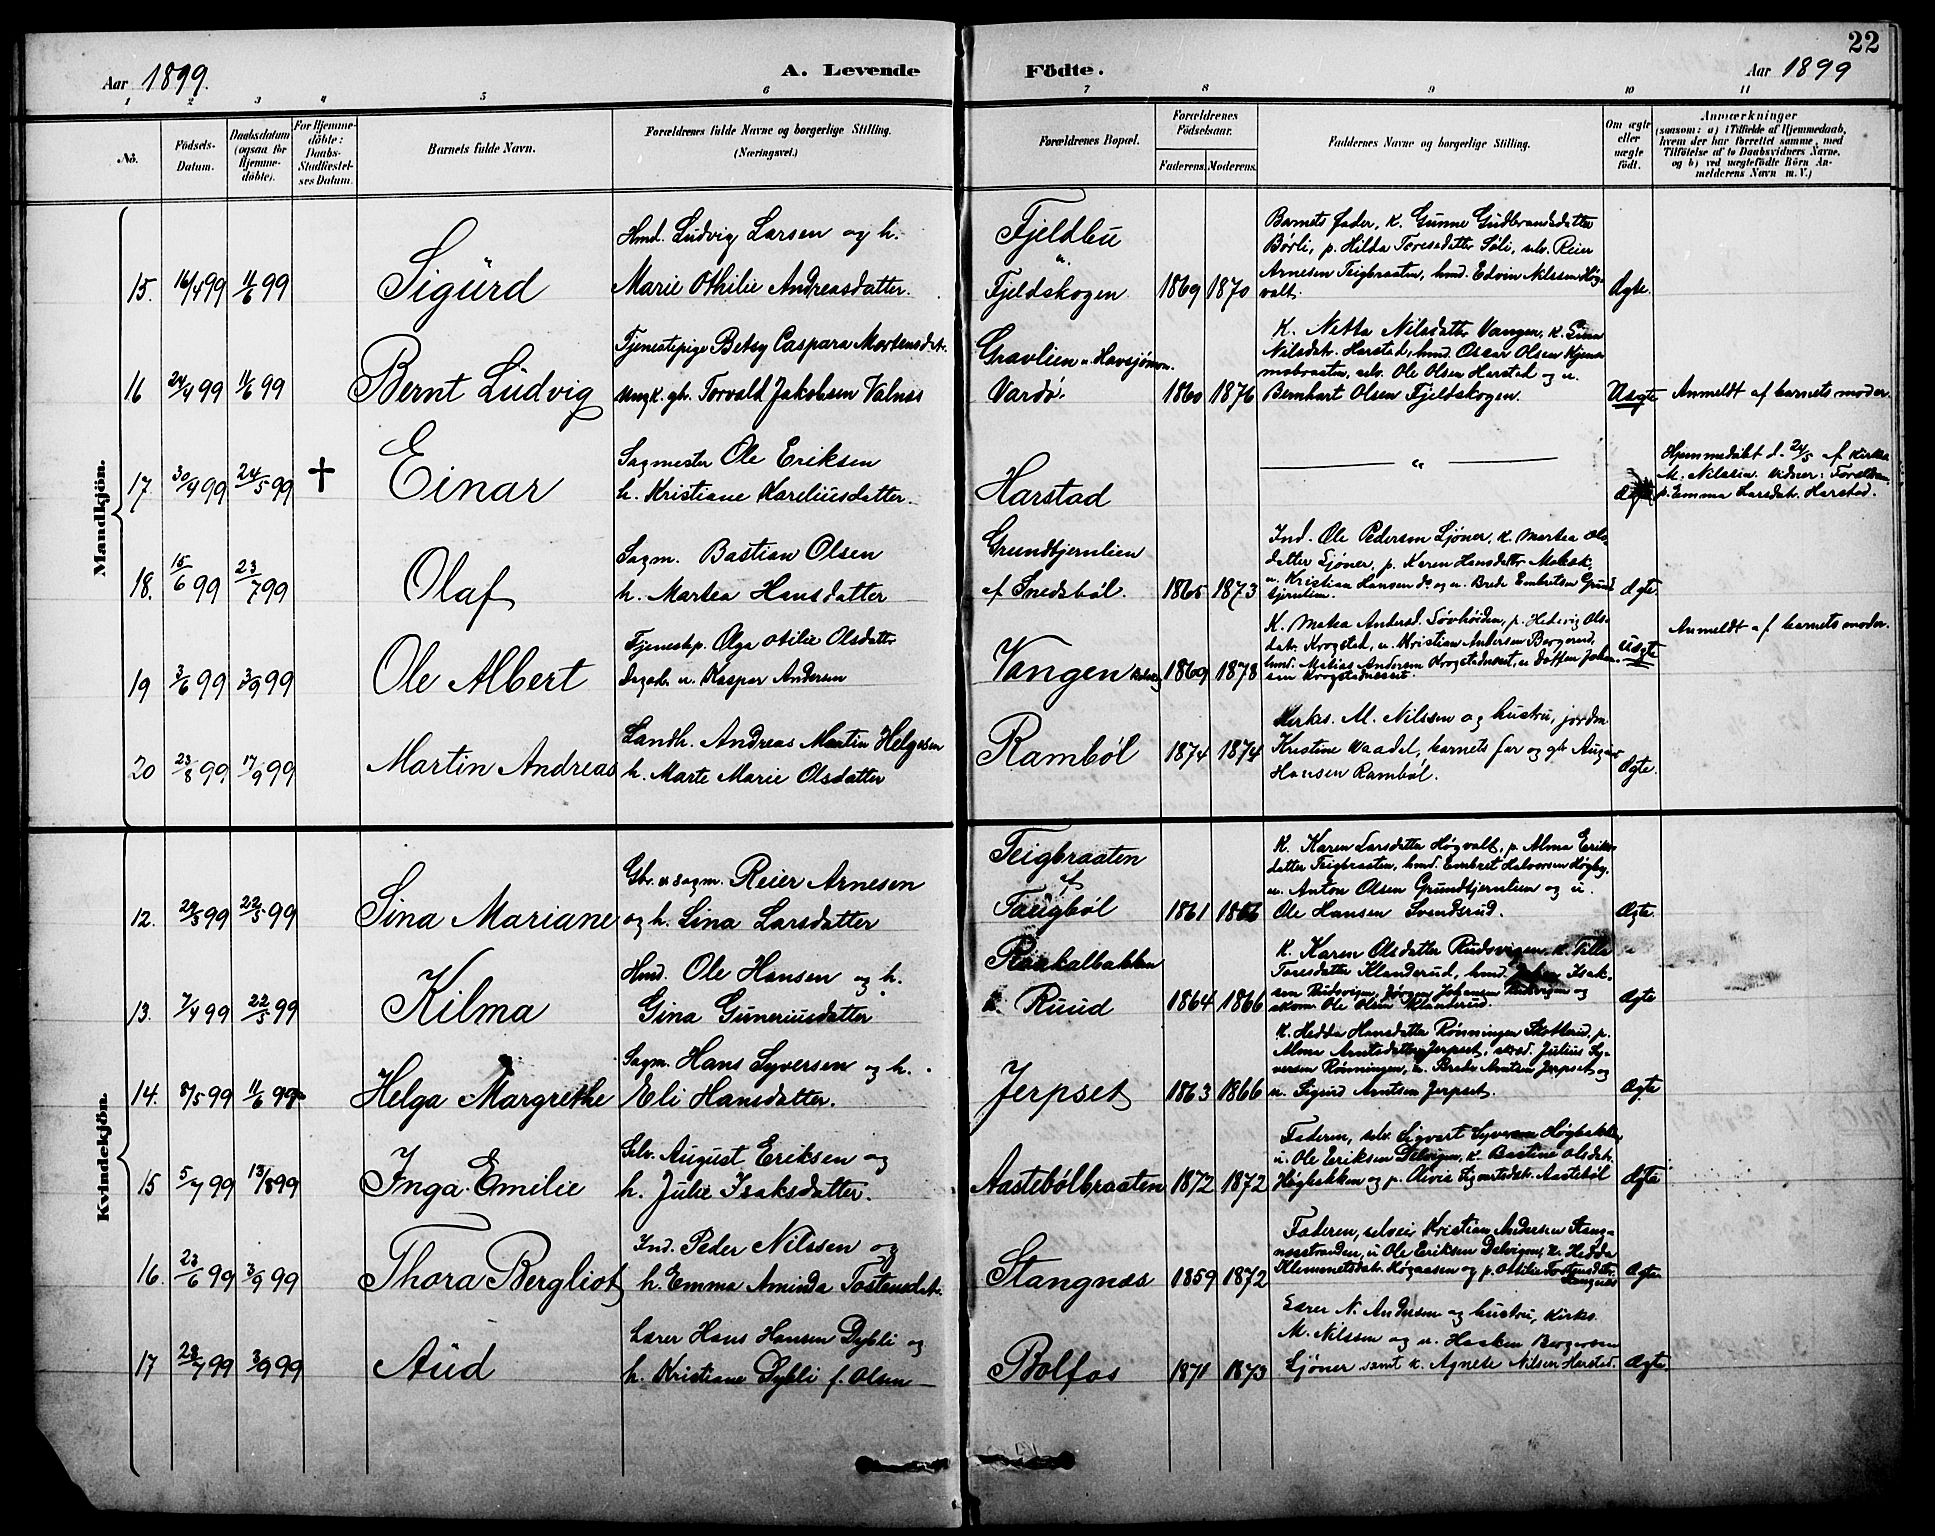 22
Aar 1899.
A. Levende
Födte.
Aar 1899
1 2 3 4 5 6 7 8 9 10 11
No.
Födsels-
Datum.
Daabsdatum
(ogsaa for
Hjemme-
döbte).
For Hjemme-
döbte:
Daabs-
Stadfæstel-
ses Datum.
Barnets fulde Navn.
Forældrenes fulde Navne og borgerlige Stilling.
(Næringsvei.)
Forældrenes Bopæl.
Forældrenes
Födselsaar.
Faderens. Moderens.
Faddernes Navne og borgerlige Stilling.
Om ægte
eller
uægte
födt.
Anmærkninger
(saasom: a) i Tilfælde af Hjemmedaab,
hvem der har forrettet samme, med
Tilföielse af to Daabsvidners Navne,
og b) ved uægtefödte Börn An-
melderens Navn m. V.)
Mandkjön.
15. 16/4 99 11/6 99 Sigurd
Hmd. Ludvig Larsen og h.
Marie Othilie Andreasdatter.
Fjeldbu
u.
Fjeldskogen
1869 1870
Barnets fader, k. Gunne Gudbrandsdatter
Børli, p. Hilda Toresdatter Søli, selv. Reier
Arnesen Teigbraaten, hmd. Edvin Nilssen Høg-
valt.
Ægte.
16 24/4 99 11/6 99 Bernt Ludvig
Tjenestepige Betsy Caspara Mortensdat.
Ungk. gb. Torvald Jakobsen Valnes
Gravlien u. Havsjøen
Vardø.
1860 1876
K. Netta Nilsdatter Vangen, k.
Nilsdatr. Harstad, hmd. Oscar Olsen
selv. Ole Olsen Harstad og u.
Bernhart Olsen Fjeldskogen.
Uægte
Anmeldt af barnets moder.
17 30/4 99 24/5 99 † Einar
Sagmester Ole Eriksen
h. Kristiane Kareliusdatter.
Harstad
— " —
Ægte
Hjemmedøbt d. 24/5 af Kirkes.
M. Nilssen. Vidner: Foreldren,
p. Emma Larsdatr. Harstad.
18. 15/6 99 23/7 99 Olaf
Sagm. Bastian Olsen
h. Martea Hansdatter
Grundtjernlien
af Snedsbøl.
1865 1873
Ind. Ole Pedersen Sjøner, k. Martea Ols-
datter Sjøner, p. Karen Hansdatter
u. Kristian Hansen do og u. Brede Embretsen Grund-
tjernlien.
Ægte
19 3/6 99 3/9 99 Ole Albert
Tjenestep. Olga Otilie Olsdatr
Dagarb. u. Kaspar Andersen
Vangen
1869 1878
K. Matea Andersd. Løvhøiden, p. Hedevig Ols-
datr. Krogstad, u. Kristian Andersen Bergerud,
hmd. Matias Andersen Krogstadneset, u. Johan-
sen Krogstadneset.
Uægte
Anmeldt af barnets moder.
20 23/8 99 17/9 99 Martin Andreas
Landh. Andreas Martin Helgesen
h. Marte Marie Olsdatter
Rambøl
1874 1874
Kirkes. M. Nilssen og hustru, jordm.
Kristine Vaadel, barnets far og gb. August
Hansen Rambøl.
Ægte.
Kvindekjön.
12. 29/3 99 22/5 99 Sina Mariane
Gbr. u. sagm. Reier Arnesen
og h. Lina Larsdatter
Teigbraaten
af
Tarigbøl
1861 1866
K. Karen Larsdatter Høgvalt, p. Alma Eriks-
datter Teigbraaten, hmd. Embret Halvorsen Høgby,
u. Anton Olsen Grundtjernlien og u.
Ole Hansen Svendsrud.
Ægte.
13. 7/4 99 22/5 99 Kilma
Hmd. Ole Hansen og h.
Gina Guneriusdatter
Raakalbakken
u. Ruud
1864 1866
K. Karen Olsdatter Rudsvigen, k. Tilla
Toresdatter Klanderud, hmd. Isak-
sen Rudsvigen, Jørgen Johansen Rudsvigen og
skom. Ole Olsen Klanderud.
Ægte
14. 8/5 99 11/6 99 Helga Margrethe
Sagm. Hans Syversen og h.
Eli Hansdatter.
Jerpset
1863 1866
K. Hedda Hansdatter Rønningen Skotterud, p.
Alma Arntsdatter Jerpset, skred. Julius Sy-
versen Rønningen, u. Brede Arntsen Jerpset og
u. Sigurd Arntsen Jerpset.
Ægte
15 5/7 99 13/8 99 Inga Emilie
Selv. August Eriksen og
h. Julie Isaksdatter.
Aastebølbraaten
1872 1872
Faderen, selv. Sigvart Syversen Høgbakken,
u. Ole Eriksen Delvigen, k. Bastine Olsdatr.
Høgbakken og p. Olivia Sigvartsdatr. Aastebøl
Ægte
16. 23/6 99 3/9 99 Thora Bergliot
Ind. Peder Nilssen og
h. Emma Aminda Tostensdatr.
Stangnæs
1859 1872
Faderen, selveier Kristian Andersen Stang-
næsstranden, u. Ole Eriksen Delvigen, k. Hedda
Klemmetsdatr. Høgaasen og p. Ottilie Tostensdatr.
Stangnæs
Ægte
17 28/7 99 3/9 99 Aud
Lærer Hans Hansen Dybli og
h. Kristiane Dybli f. Olsen
Bolfos
1871 1873
Lærer N. Andersen og hustru, Kirkes.
M. Nilssen og u. Haaken Bergersen
Sjøner samt k. Agnete Nilsen Harstad.
Ægte